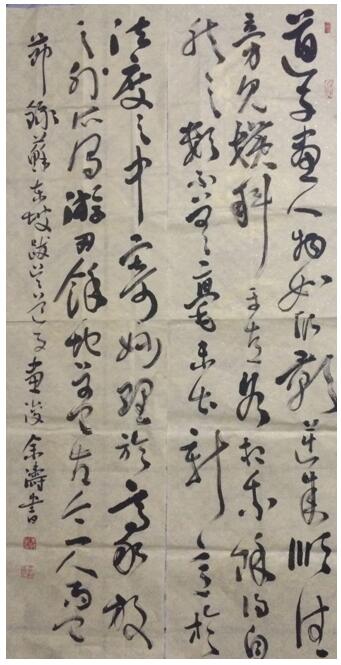 道子畫人物如影逆來順往
旁見橫斜平直各相乘除得自
然之數不差毫末出新意於
法度之中寄妙理於豪放
之外所謂游刃餘地蓋古今一人而已
節錄蘇東坡跋吳道子畫後余濤書